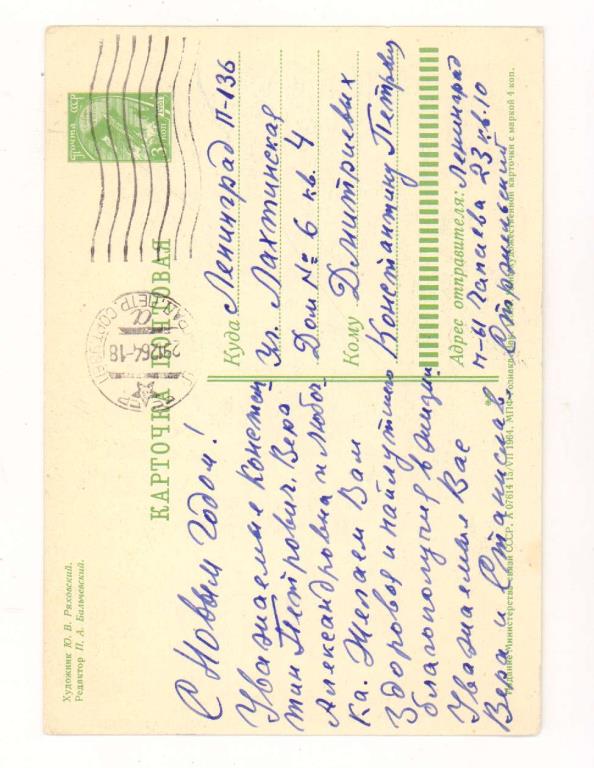 Художник Ю. В. Ряховский.
Редактор П. А. Бальчевский.
ПОЧТА СССР
3 КОП
КАРТОЧКА ПОЧТОВАЯ
29 12 64-18
С Новым Годом!
Уважаемые Констан
тин Петрович. Вера
Александровна и Любоч
ка. Желаем Вам
Здоровья и наилутшего
благополучия в жизни
Уважаемыя Вас
Вера и Станислав.
Куда Ленинград П-136
ул. Лахтинская
Дом № 6 кв. 4
Кому Дмитриевых
Константину Петрович
Адрес отправителя: Ленинград
Чапаева 23 кв. 10
Издание Министерства связи СССР. А 07614 15/VII 1964. МПФ Гознака.
художественной карточки с маркой 4 коп.